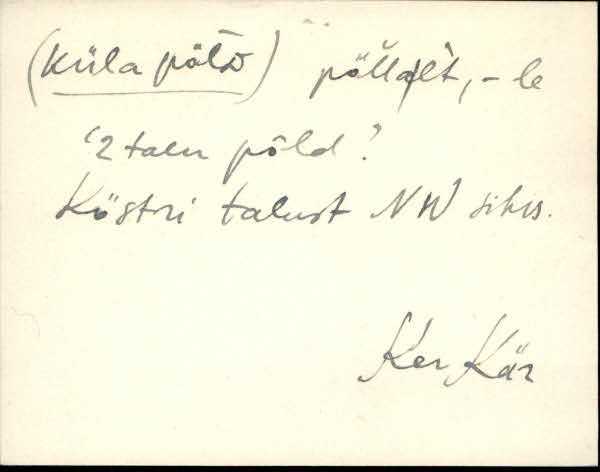 (Küla põld) põllalt, -le
'2 talu põld'.
Köstri talust NW sihis.
Ker Kär